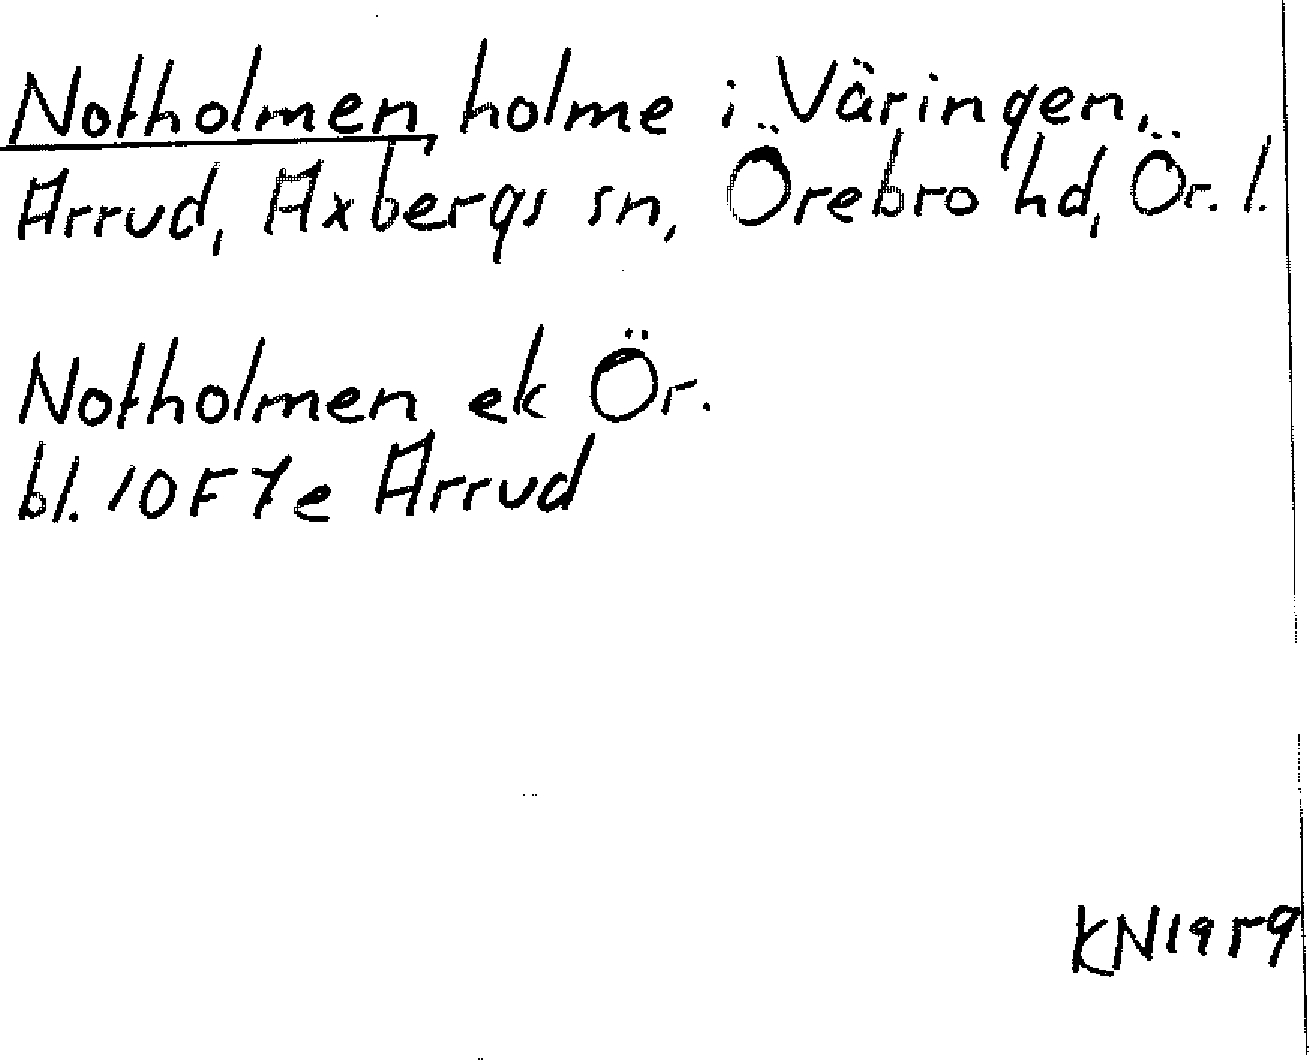 Notholmen, holme i Väringen,
Arrud, Axbergs sn, Örebro hd, Ör. l.
Notholmen ek Ör.
bl. 10F7e Arrud
KN1959